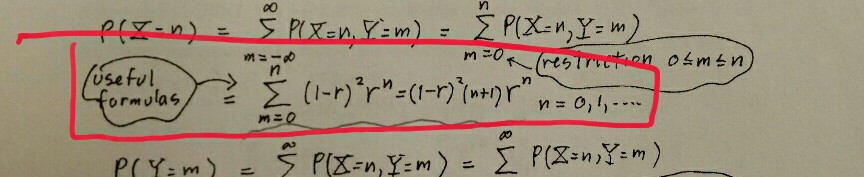 P(X=n) = ∞∑m=-∞ P(X=n, Y=m) = n∑m=0 P(X=n, Y=m)
(restriction 0≤m≤n)
useful formulas → = n∑m=0 (1-r)²rⁿ = (1-r)²(n+1)rⁿ n = 0,1,....
P(Y=m) = ∞∑ P(X=n, Y=m) = ∞∑ P(X=n, Y=m)